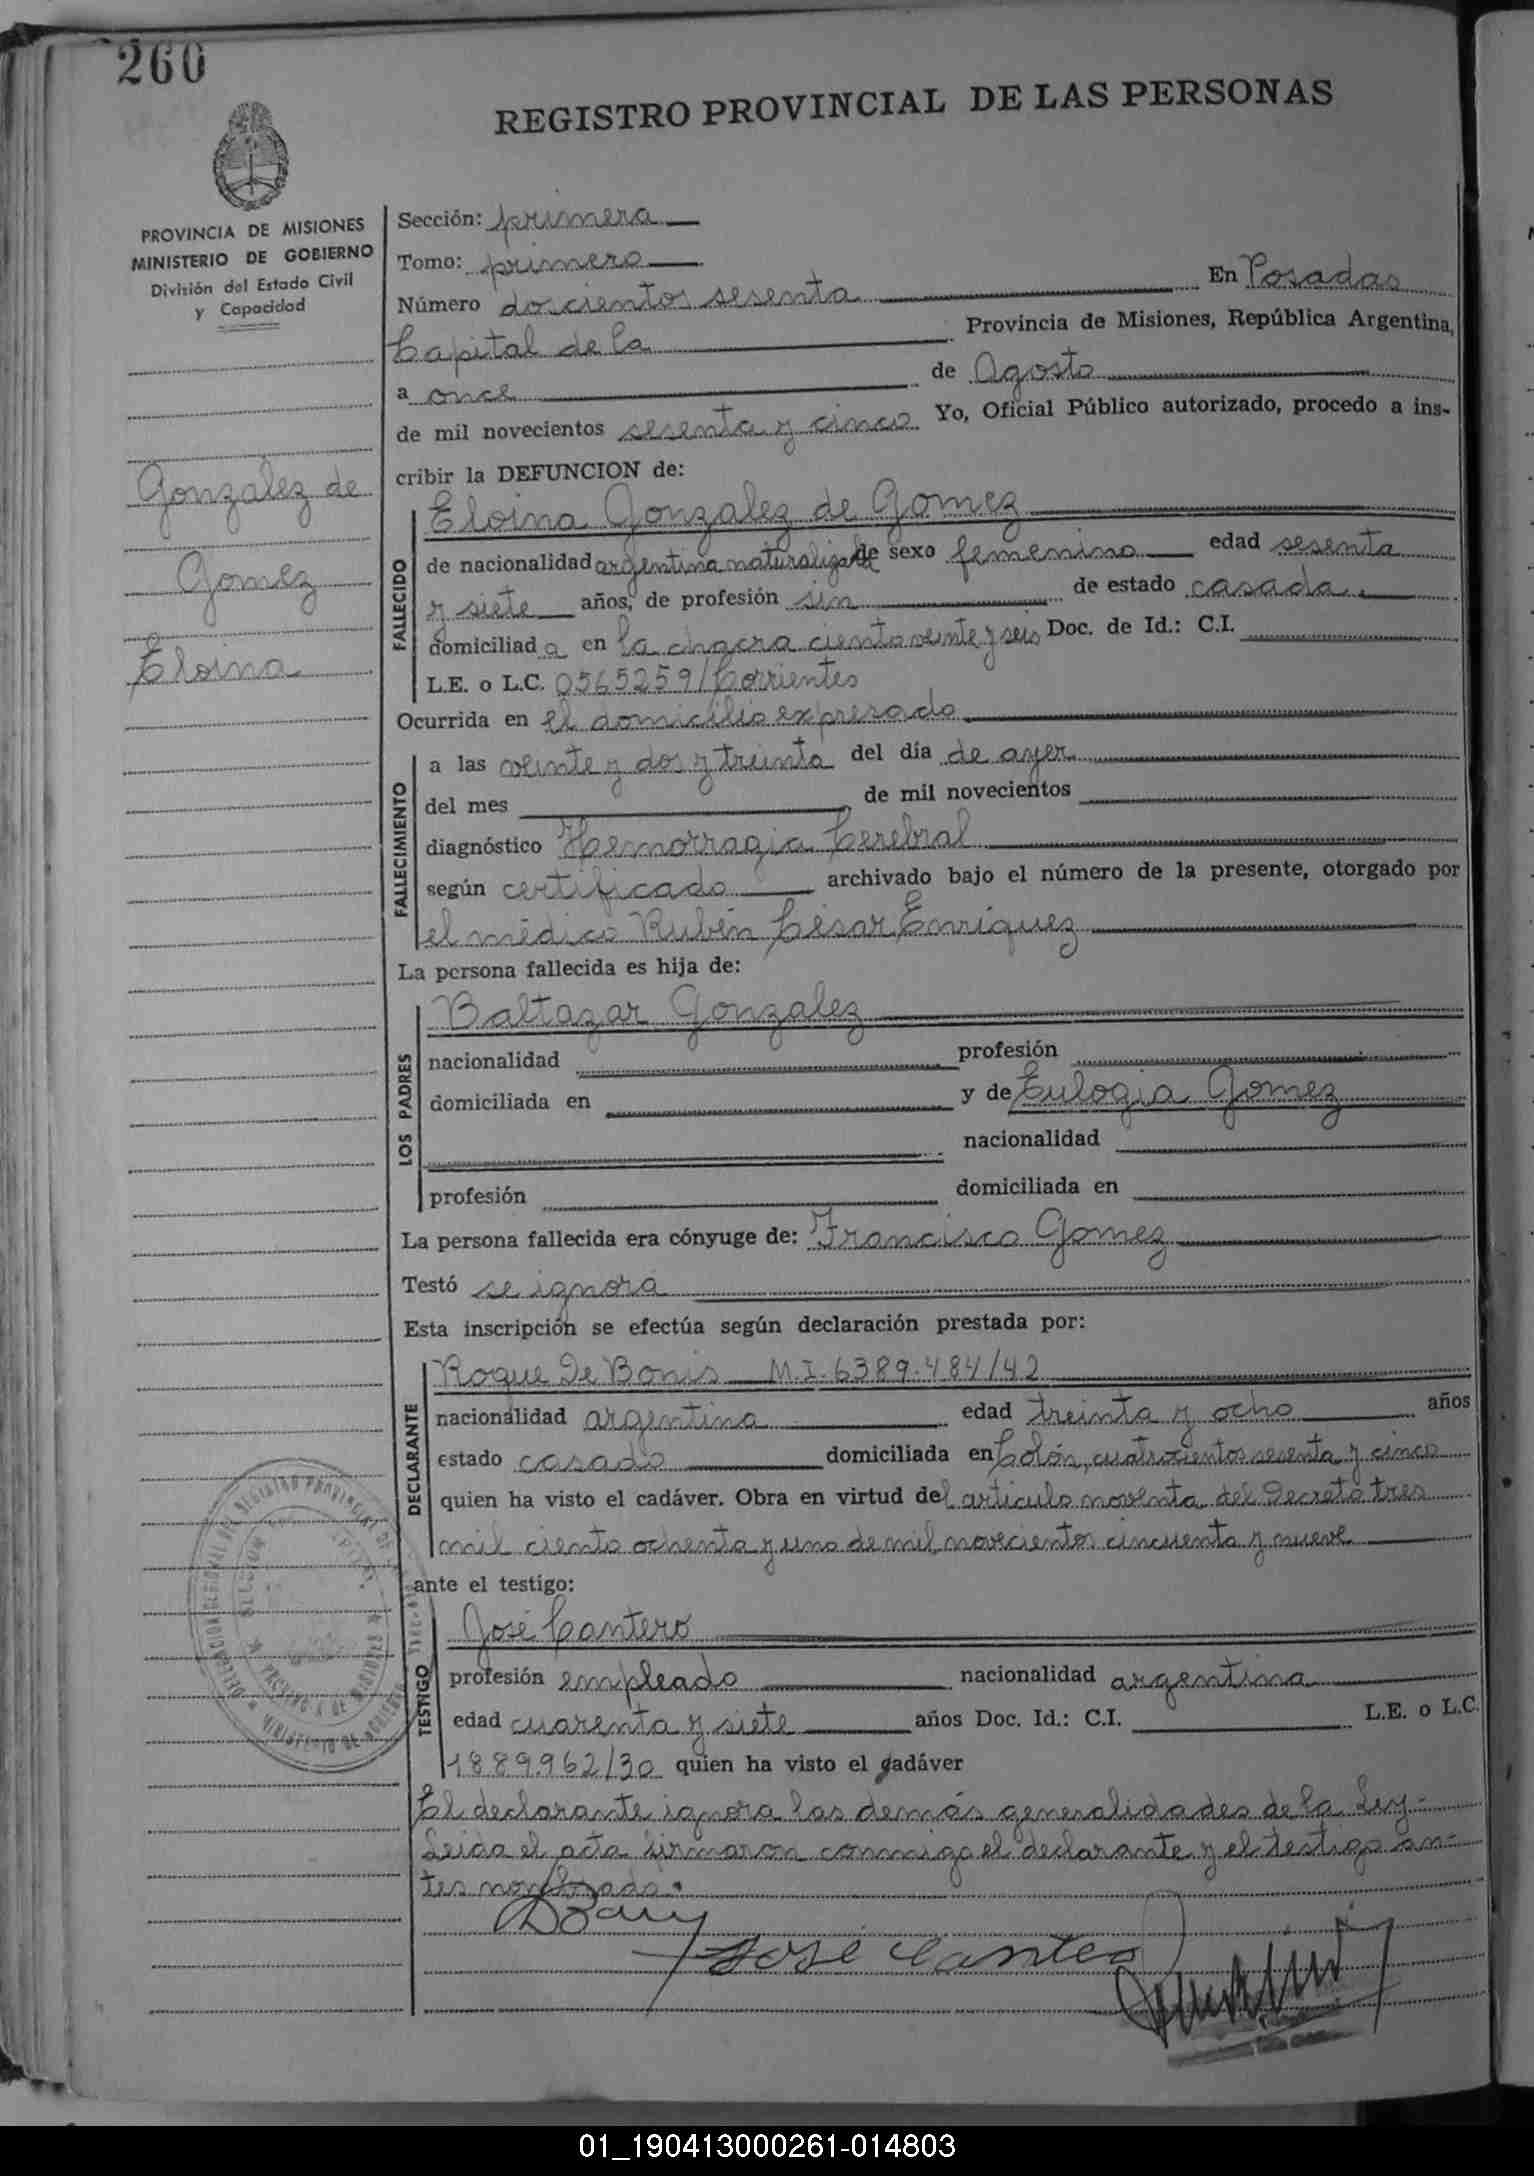 260
REGISTRO PROVINCIAL DE LAS PERSONAS
PROVINCIA DE MISIONES
MINISTERIO DE GOBIERNO
División del Estado Civil
y Capacidad
Gonzalez de
Gomez
Eloina
Sección: primera
Tomo: primero
Número doscientos sesenta En Posadas
Capital de la Provincia de Misiones, República Argentina,
a once de Agosto
de mil novecientos sesenta y cinco Yo, Oficial Público autorizado, procedo a ins-
cribir la DEFUNCION de:
FALLECIDO
Eloina Gonzalez de Gomez
de nacionalidad argentina naturalizada de sexo femenino edad sesenta
y siete años, de profesión sin de estado casada
domiciliada en la chacra ciento veinte y seis Doc. de Id.: C.I.
L.E. o L.C. 0565259/Corrientes
Ocurrida en el domicilio expresado
FALLECIMIENTO
a las veinte y dos y treinta del día de ayer
del mes de mil novecientos
diagnóstico Hemorragia Cerebral
según certificado archivado bajo el número de la presente, otorgado por
el médico Rubén César Enriquez
La persona fallecida es hija de:
LOS PADRES
Baltazar Gonzalez
nacionalidad profesión
domiciliada en y de Eulogia Gomez
nacionalidad
profesión domiciliada en
La persona fallecida era cónyuge de: Francisco Gomez
Testó se ignora
Esta inscripción se efectúa según declaración prestada por:
DECLARANTE
Roque De Bonis M.I. 6389.484/42
nacionalidad argentina edad treinta y ocho años
estado casado domiciliada en Colón, cuatrocientos sesenta y cinco
quien ha visto el cadáver. Obra en virtud del articulo noventa del Decreto tres
mil ciento ochenta y uno de mil novecientos cincuenta y nueve
ante el testigo:
TESTIGO
José Cantero
profesión empleado nacionalidad argentina
edad cuarenta y siete años Doc. Id.: C.I. L.E. o L.C.
1889.962/30 quien ha visto el cadáver
El declarante ignora las demás generalidades de la Ley.-
Leida el acta firmaron conmigo el declarante y el testigo an-
tes nombrado.
José Cantero
01_190413000261-014803